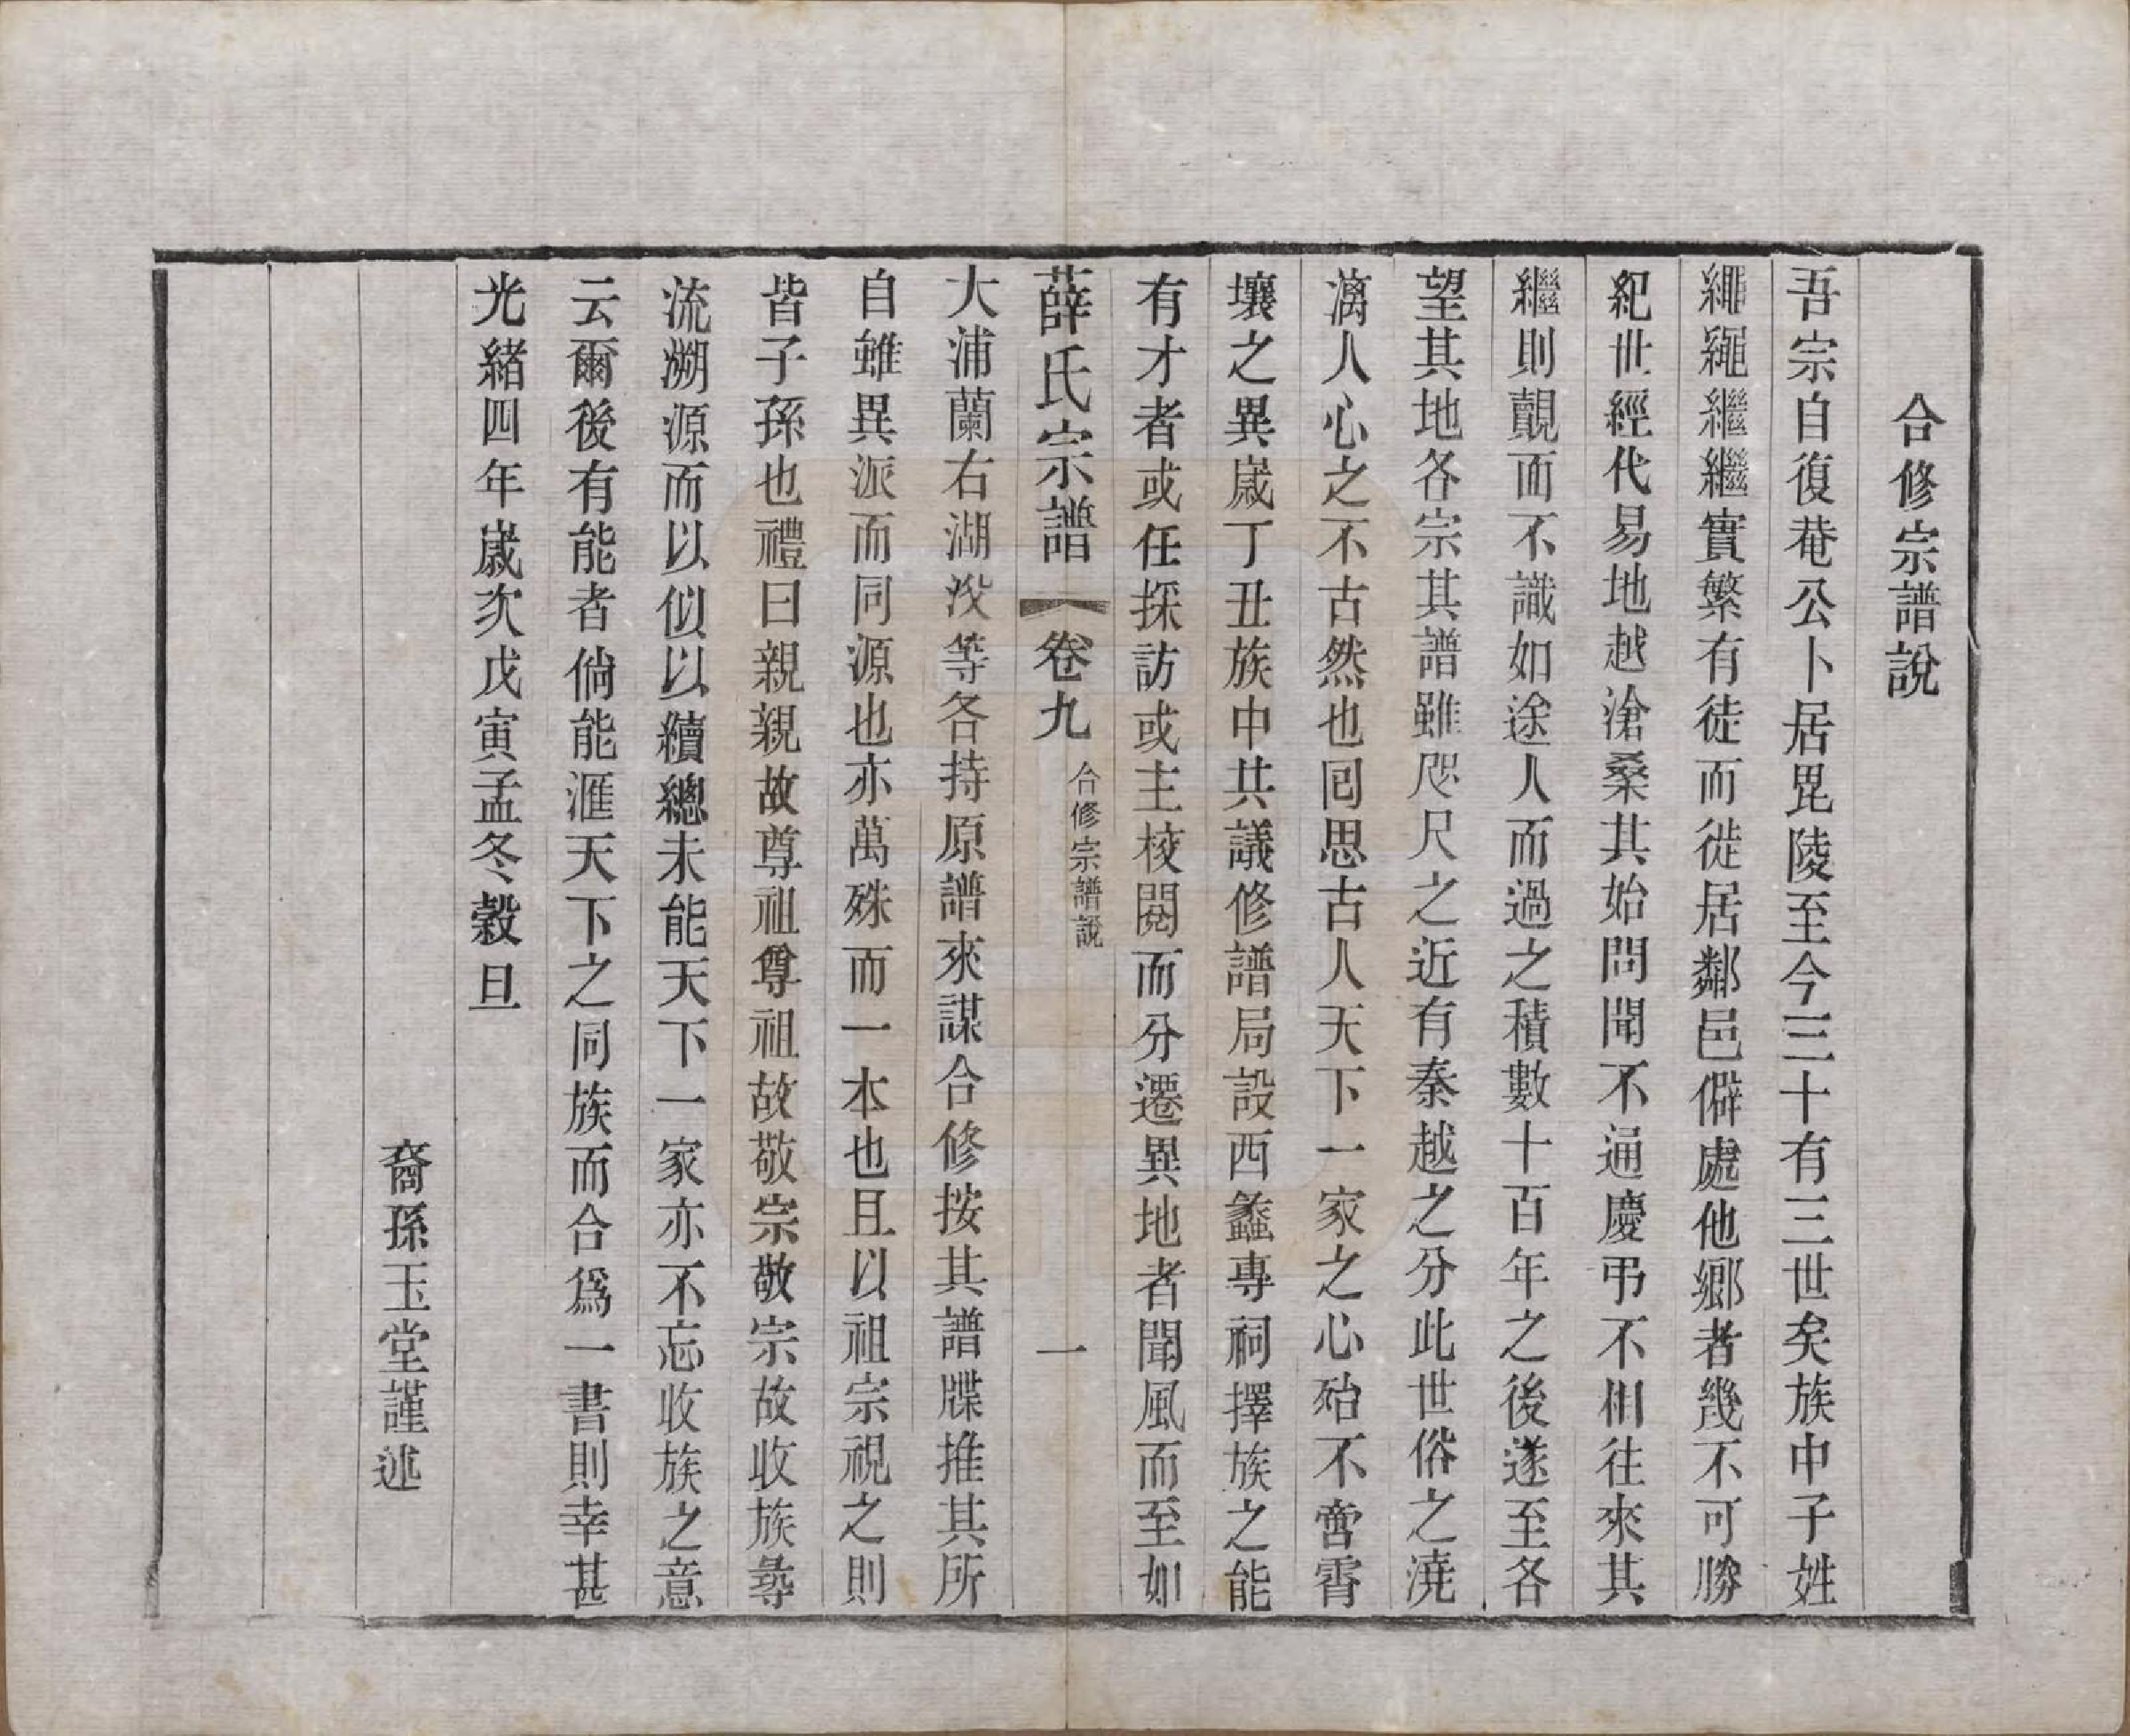 合修宗譜說
吾宗自復菴公卜居毘陵至今三十有三世矣族中子姓
繩繩繼繼實繁有徒而徙居鄰邑僻處他鄉者幾不可勝
紀世經代易地越滄桑其始問聞不通慶弔不相往來其
繼則覿面不識如途人而過之積數十百年之後遂至各
望其地各宗其譜雖咫尺之近有秦越之分此世俗之澆
漓人心之不古然也囘思古人天下一家之心殆不啻霄
壤之異歲丁丑族中共議修譜局設西蠡專祠擇族之能
有才者或任採訪或主校閱而分遷異地者聞風而至如
薛氏宗譜 卷九 合修宗譜說 一
大浦蘭右湖㳇等各持原譜來謀合修按其譜牒推其所
自雖異派而同源也亦萬殊而一本也且以祖宗視之則
皆子孫也禮曰親親故尊祖尊祖故敬宗敬宗故收族㝷
流溯源而以似以續總未能天下一家亦不忘收族之意
云爾後有能者倘能滙天下之同族而合爲一書則幸甚
光緒四年歲次戊寅孟冬穀旦
裔孫玉堂謹述